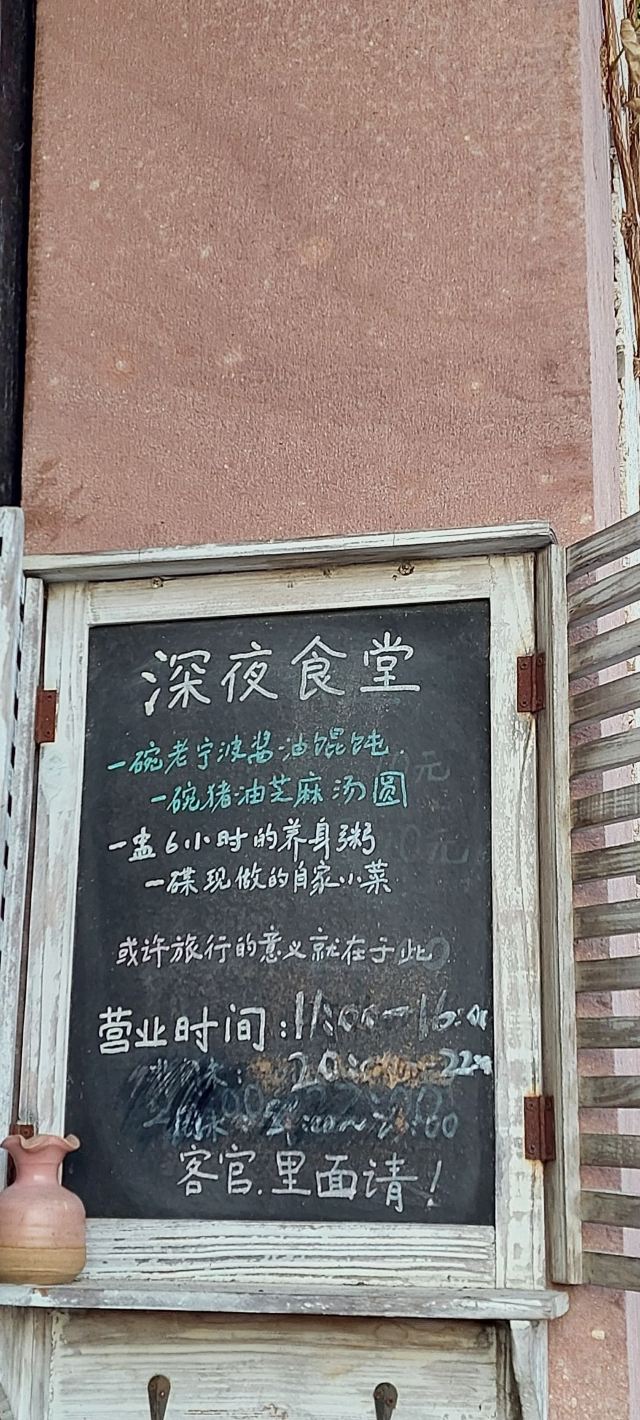 深夜食堂
一碗老宁波酱油馄饨
一碗猪油芝麻汤圆
一盅6小时的养身粥
一碟现做的自家小菜
或许旅行的意义就在于此
营业时间:11:00-16:00
20:00-22:00
客官.里面请!